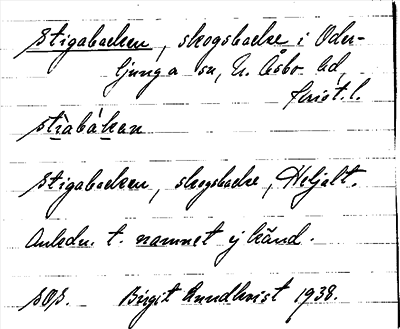 Stigabacken, skogsbacke i Oder-
ljunga sn, N. Åsbo hd,
Krist. l.
stìabákan
Stigabacken, skogsbacke,
Anledn. t. namnet ej känd.
SOS. Birgit Rundkvist 1938.